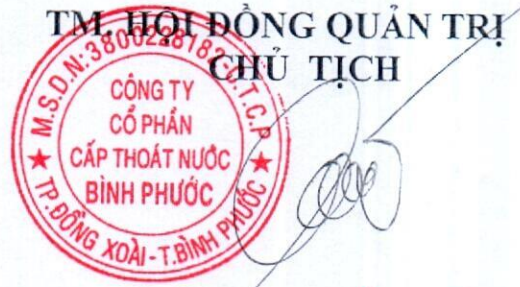 TM. HỘI ĐỒNG QUẢN TRỊ
CHỦ TỊCH
M.S.D.N:3800228182-C.T.C.P
CÔNG TY
CỔ PHẦN
CẤP THOÁT NƯỚC
BÌNH PHƯỚC
TP.ĐỒNG XOÀI-T.BÌNH PHƯỚC